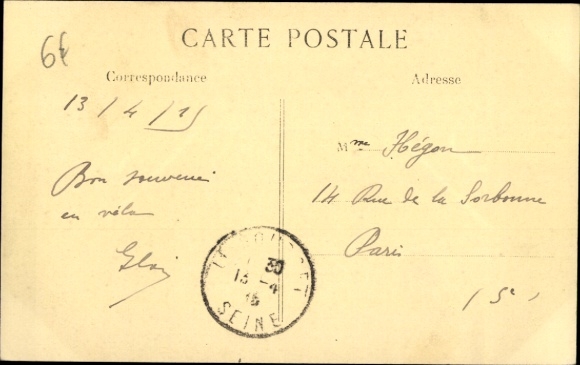 6€
CARTE POSTALE
Correspondance
Adresse
13/4/15
Mme Hégon
Bon souvenir
en vélo
14 Rue de la Sorbonne
Paris
LE BOURGET
30
13 -4
15
SEINE